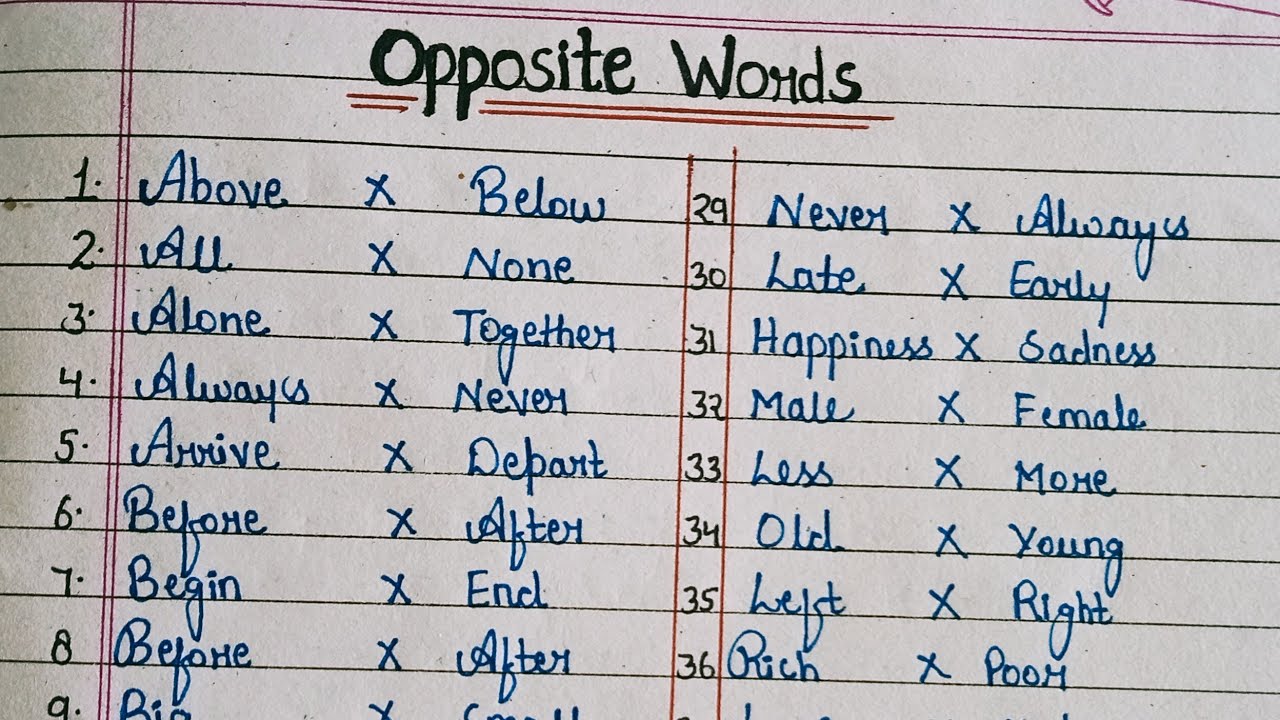 Opposite Words
1. Above x Below
2. All x None
3. Alone x Together
4. Always x Never
5. Arrive x Depart
6. Before x After
7. Begin x End
8 Before x After
9. Big x Small
29 Never x Always
30 Late x Early
31 Happiness x Sadness
32 Male x Female
33 Less x More
34 Old x Young
35 Left x Right
36 Rich x Poor